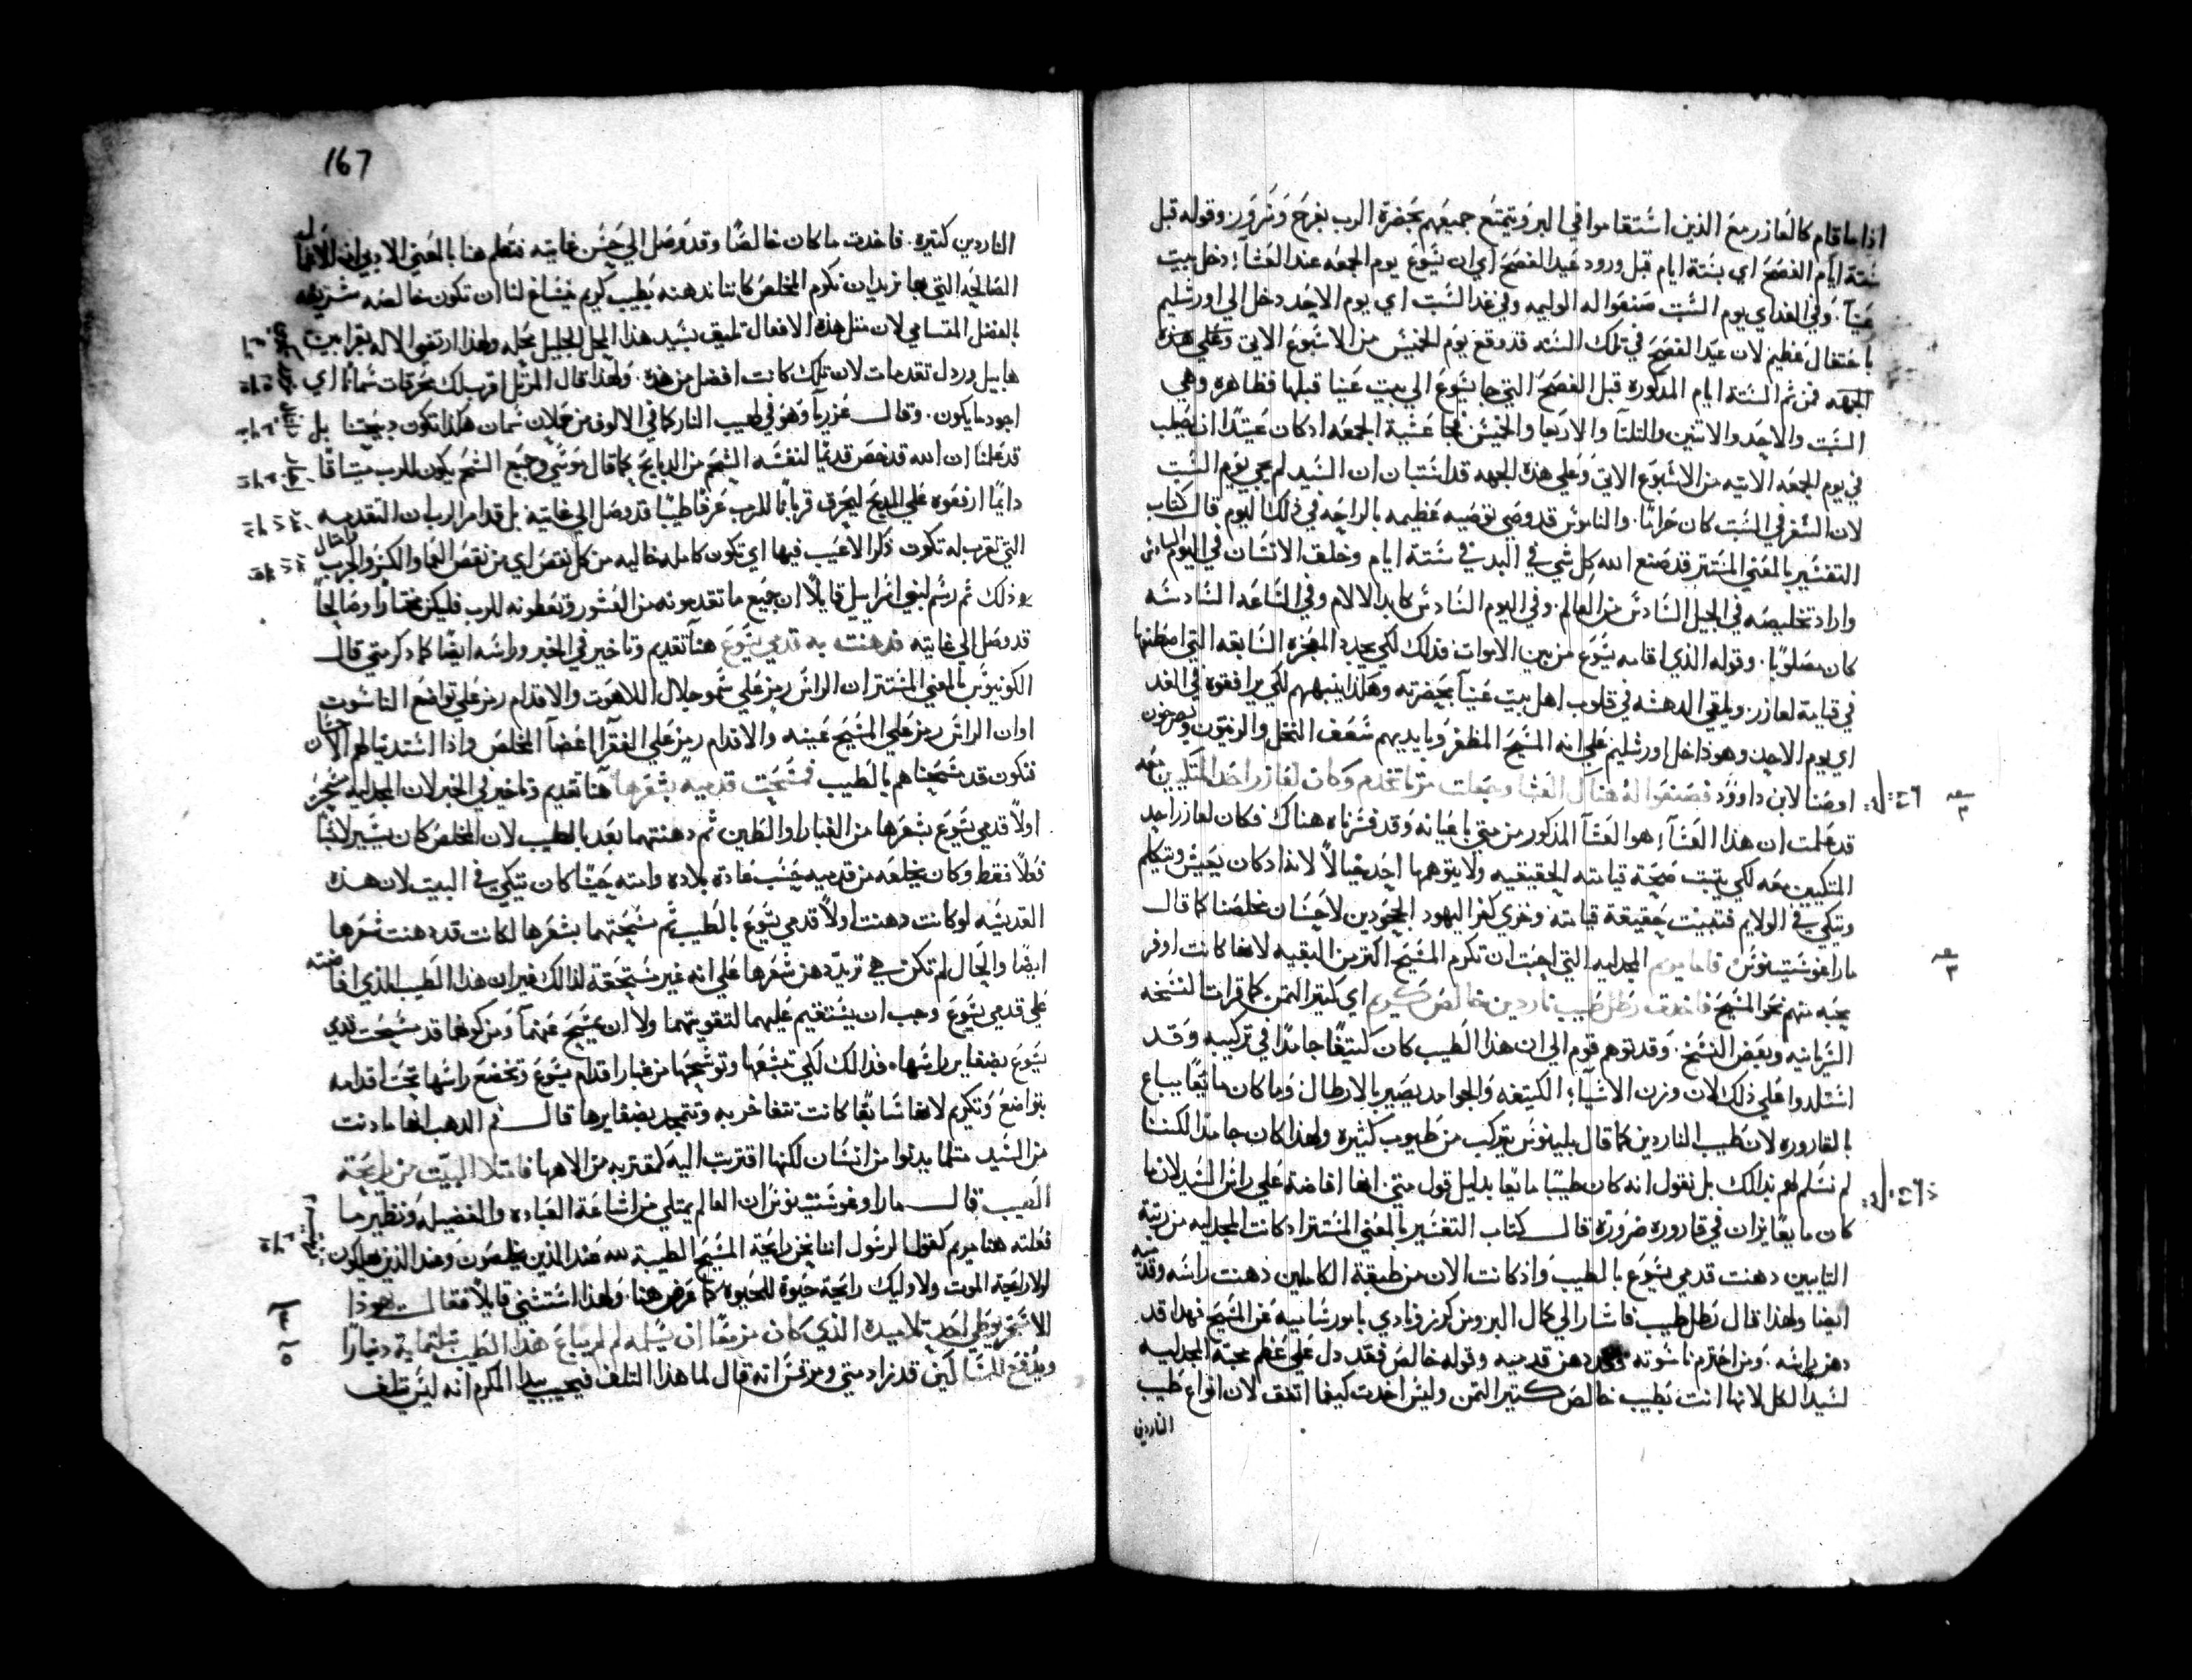 اذا ما قام كالعازر مع الذين استقاموا في البر ويتمتع جميعهم بحضرة الرب بفرح وسرور. وقوله قبل
ستة ايام الفصح اي بستة ايام قبل ورود عيد الفصح اي ان يسوع يوم الجمعه عند العشآء دخل بيت
عنيآ. وفي الغد اي يوم السبت صنعوا له الوليمه وفي غد السبت اي يوم الاحد دخل الي اورشليم
باحتفال عظيم لان عيد الفصح في تلك السنه قد وقع يوم الخميس من الاسبوع الاتي وعلي هذه
الجهه فمن ثم الستة ايام المذكوره قبل الفصح التي جا يسوع الي بيت عنيا قبلها فظاهره وهي
السبت والاحد والاتنين والتلتا والاربعا والخميس فجا عشية الجمعه اد كان عتيدًا ان يصلب
في يوم الجمعه الاتيه من الاسبوع الاتي وعلي هذه الجهه قد استبان ان السيد لم يجي يوم السبت
لان السفر في السبت كان حرامًا. والناموس قد وصي توصيه عظيمه بالراحه في ذلك اليوم قال كتاب
التفسير بالمعني المستتر قد صنع الله كل شي في البدي في ستة ايام وخلق الانسان في اليوم السادس
واراد تخليصه في الجيل السادس من العالم. وفي اليوم السادس كابد الالام وفي الساعه السادسه
كان مصلوبًا. وقوله الذي اقامه يسوع من بين الاموات فدلك لكي يجدد المعجزه السابقه التي اصطنعها
في قيامة لعازر. ويلقي الدهشه في قلوب اهل بيت عنيآ بحضرته وهكذا ينبههم لكي يرافقوه في الغد
اي يوم الاحد وهو داخل اورشليم علي انه المسيح المظفر وبايديهم سعف النخل والزيتون ويصرخون
اوصنا لابن داوود فصنعوا له هناك العشا وجعلت مرتا تخدم وكان لعازر احد المتكيين معه
قد علمت ان هذا العشآء هو العشآ المذكور من متي باعيانه وقد فسرناه هناك فكان لعازر احد
المتكيين معه لكي يتبت صحة قيامته الحقيقيه ولا يتوهمها احد خيالاً لانه اد كان يعيش ويتكلم
ويتكي في الولايم فتبينت حقيقة قيامته وخزي كفر اليهود الجحودين لاحسان مخلصنا كما قال
ماراغوستينوس فاما مريم المجدليه التي احبت ان تكرم المسيح اكتر من البقيه لانها كانت اوفر
محبه منهم نحو المسيح فاخدت رطل طيب ناردين خالص كريم اي كتير التمن كما قرات النسخه
السريانيه وبعض النسخ. وقد توهم قوم الي ان هذا الطيب كان كتيفًا جامدًا في تركيبه وقد
استلدوا علي ذلك لان وزن الاشيآء الكتيفه والجوامد يصير بالارطال وما كان مايعًا يباع
بالقاروره لان طيب الناردين كما قال بلينوس يتركب من طيوب كثيره ولهذا كان جامدًا لكننا
لم نسلم لهم بدالك بل نقول انه كان طيبًا مايعًا بدليل قول متي انها افاضته علي راس السيد لان ما
كان مايعًا يزان في قاروره ضرورة قال كتاب التفسير بالمعني المستتر اد كانت المجدليه من رتبة
التايبين دهنت قدمي يسوع بالطيب واذ كانت الان من طبقة الكاملين دهنت راسه وقدميه
ايضا ولهذا قال رطل طيب فاشار الي كمال البر ومن كرز ونادي بامور ساميه عن المسيح فهدا قد
دهن راسه. ومن احترم ناسوته فقد دهن قدميه وقوله خالص فقد دل علي عظم محبة المجدليه
لسيد الكل لانها اتت بطيب خالص كتير التمن وليس اخدت كيفما اتفق لان انواع طيب
الناردين
167
الناردين كتيره. فاخدت ما كان خالصًا وقد وصل الي حسن غايته فنتعلم هنا بالمعني الادبي ان الاعمال
الصالحه التي بها نريد ان نكرم المخلص كاننا ندهنه بطيب كريم فيساغ لنا ان تكون خالصه شريفه
بالفضل المتسامي لان متل هذه الافعال تليق بسيد هذا الجل الجليل محله ولهذا ارتضي الاله بقرابين
هابيل وردل تقدمات لان تلك كانت افضل من هذه. ولهذا قال المرتل اقرب لك محرقات سمانًا اي
اجود ما يكون. وقال عزريآ وهو في لهيب النار كما في الالوف من حملان سمان هكذا تكون دبيحتنا بل
قد علمنا ان الله قد خص قديمًا لنفسه الشحم من الدبايح كما قال موسي وجميع الشحم يكون للرب ميتاقًا
دايمًا ارفعوه علي المدبح ليحرق قربانًا للرب عرفا طيبًا قد وصل الي غايته بل قد امر الرب ان التقدمه
التي تقرب له تكون ذكرا لا عيب فيها اي تكون كامله خاليه من كل نقص اي من نقص العما والكسر والجرب وامتال
ذلك ثم رسم لبني اسراييل قايلاً ان جميع ما تقدمونه من العشور وتعطونه للرب فليكن مختارًا وصالحاً
قد وصل الي غايته فدهنت به قدمي يسوع هنآ تقديم وتاخير في الخبر وراسه ايضًا كما دكر متي قال
الكونيوس بالمعني المستتر ان الراس رمز علي سمو جلال اللاهوت والاقدام رمز علي تواضع الناسوت
او ان الراس رمز علي المسيح عينه والاقدام رمز علي الفقرآ اعضآ المخلص واذا استديناهم الاحسان
فنكون قد مسحناهم بالطيب فمسحت قدميه بشعرها هنآ تقديم وتاخير في الخبر لان المجدليه مسحت
اولاً قدمي يسوع بشعرها من الغبار او الطين ثم دهنتهما بعد بالطيب لان المخلص كان يسير لابسًا
نعلاً فقط وكان يخلعه من قدميه حسب عادة بلاده وامته حيثما كان يتكي في البيت لان هذه
القديسه لو كانت دهنت اولاً قدمي يسوع بالطيب ثم مسحتهما بشعرها لكانت قد دهنت شعرها
ايضًا والحال لم تكن هي تريد دهن شعرها علي انه غير مستحقة لذالك فيران هذا الطيب الذي افاضته
علي قدمي يسوع وجب ان يستقيم عليهما لتقويتهما ولا ان يمسح عنهمآ ومن كونها قد مسحت قدمي
يسوع بضفاير راسها. فدالك لكي تمسحها وتوسخها من غبار اقدام يسوع وتخضع راسها تحت اقدامه
بتواضع وتكريم لانها سابقًا كانت تتفاخر به وتتمجد بضفايرها قال فم الدهب انها ما دنت
من السيد متلما يدنوا من انسان لكنها اقتربت اليه كمقتربه من الاهها فامتلا البيت من رايحة
الطيب قال ماراوغوستينوس ان العالم يمتلي من اشاعة العباده والفضيله ونظير ما
فعلته هنا مريم كقول الرسول اننا نحن رايحة المسيح الطيبة لله عند الذين يخلصون وعند الذين يهلكون
لاولا رايحة الموت ولاوليك رايحة حيوة للحيوه كما عرض هنا. ولهذا استتني قايلاً فقال يهوذا
الاسخريوطي احد تلاميده الذي كان مزمعًا ان يسلمه لم لم يباع هذا الطيب بتلتماية دينارًا
ويدفع للمساكين قد زاد متي ومرقس انه قال لما هذا التلف فيجيب بيدا المكرم انه ليس تلف